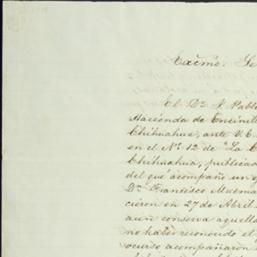 Excmo. Se
El Dn. J. Pabl
Hacienda de Encinill
Chihuahua, ante V.E.
en el No. 12 de "La C
Chihuahua, publicad
del que acompaño un ej
Dn. Francisco
cieron en 27 de Abril
aun conserva aquella
no haber reconocido el
ocurso acompañaron